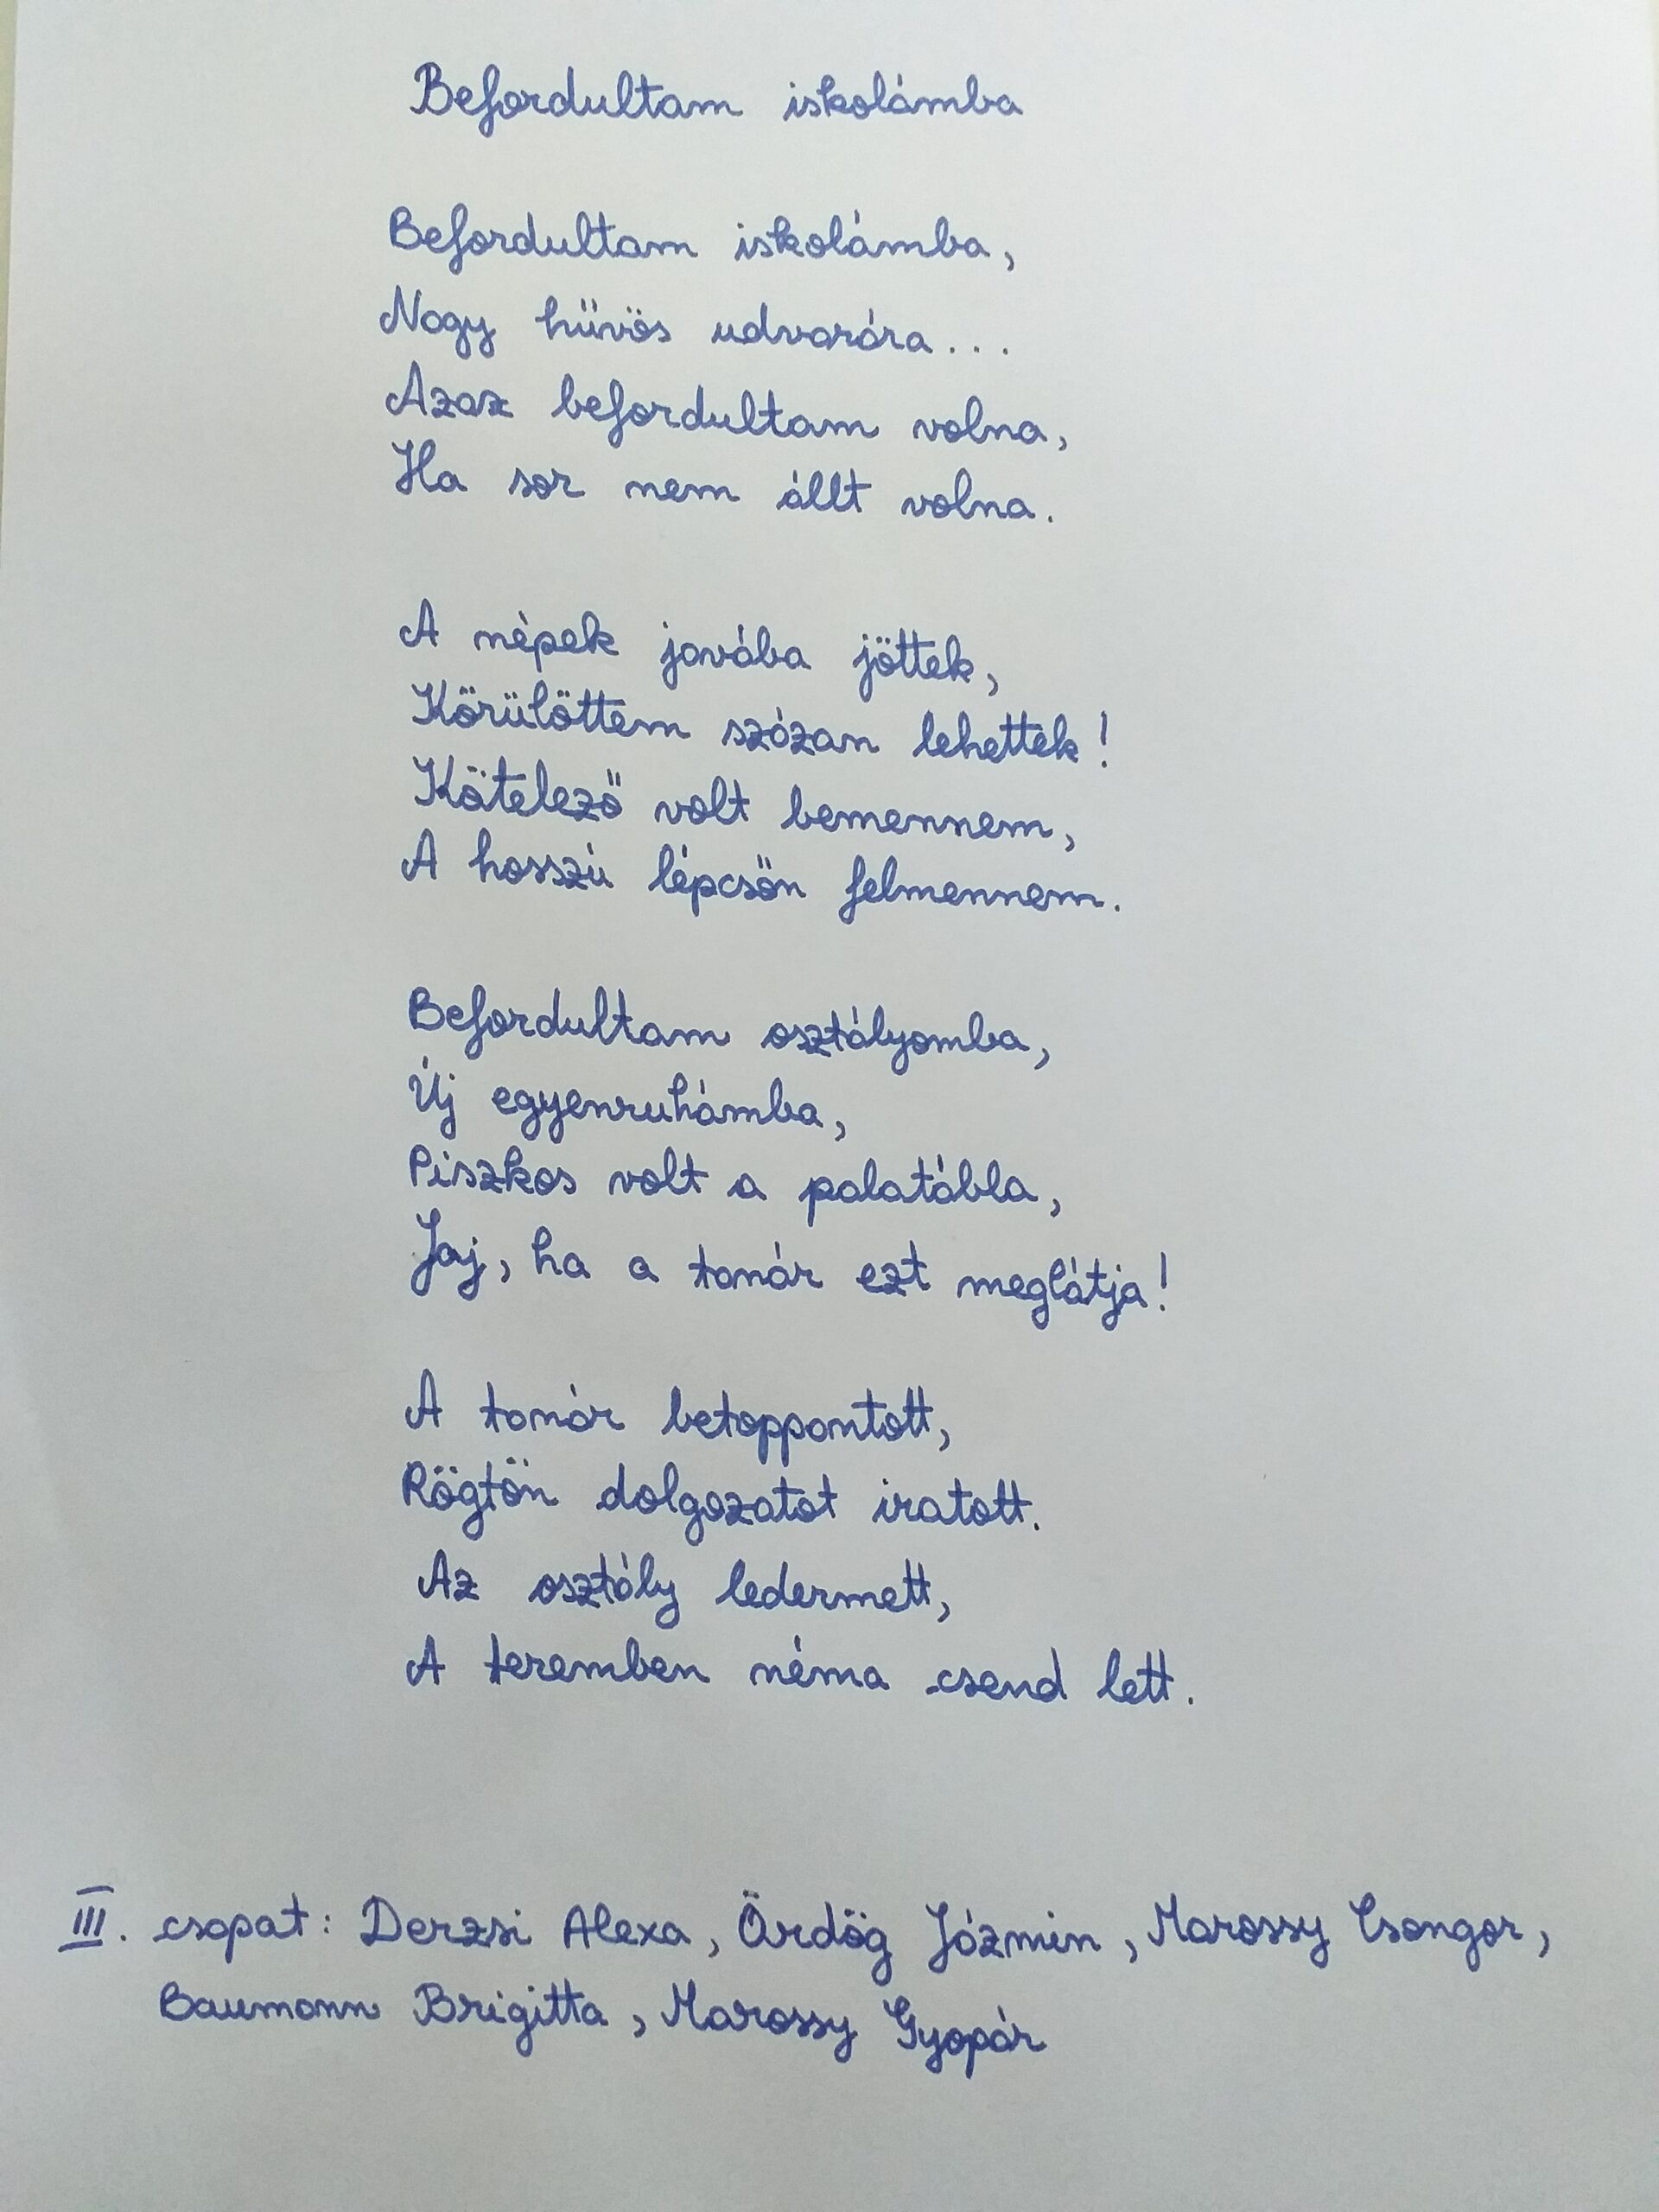 Befordultam iskolámba
Befordultam iskolámba,
Nagy hűvös udvarára...
Azaz befordultam volna,
Ha sor nem állt volna.
A népek javába jöttek,
Körülöttem százan lehettek!
Kötelező volt bemennem,
A hosszú lépcsőn felmennem.
Befordultam osztályomba,
Új egyenruhámba,
Piszkos volt a palatábla,
Jaj, ha a tanár ezt meglátja!
A tanár betoppantott,
Rögtön dolgozatot iratott.
Az osztály ledermett,
A teremben néma csend lett.
III. csapat: Derzsi Alexa, Ördög Jázmin, Marossy Csongor,
Baumann Brigitta, Marossy Gyopár